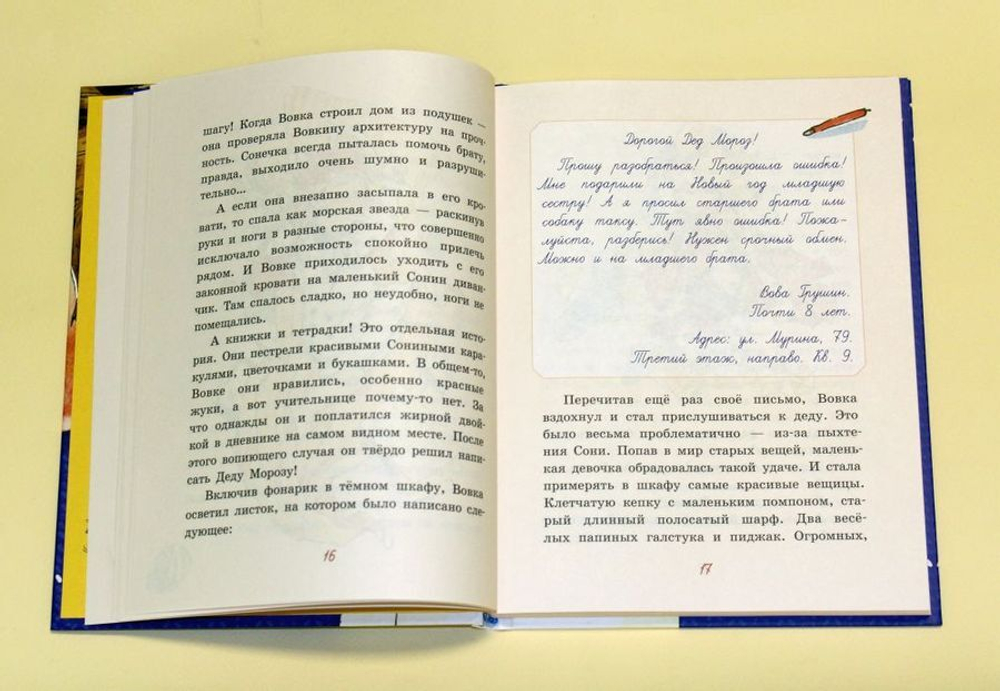 шагу! Когда Вовка строил дом из подушек —
она проверяла Вовкину архитектуру на проч-
ность. Сонечка всегда пыталась помочь брату,
правда, выходило очень шумно и разруши-
тельно...
А если она внезапно засыпала в его кро-
вати, то спала как морская звезда — раскинув
руки и ноги в разные стороны, что совершенно
исключало возможность спокойно прилечь
рядом. И Вовке приходилось уходить с его
законной кровати на маленький Сонин диван-
чик. Там спалось сладко, но неудобно, ноги не
помещались.
А книжки и тетрадки! Это отдельная исто-
рия. Они пестрели красивыми Сониными кара-
кулями, цветочками и букашками. В общем-то,
Вовке они нравились, особенно красные
жуки, а вот учительнице почему-то нет. За
что однажды он и поплатился жирной двой-
кой в дневнике на самом видном месте. После
этого вопиющего случая он твёрдо решил напи-
сать Деду Морозу!
Включив фонарик в тёмном шкафу, Вовка
осветил листок, на котором было написано сле-
дующее:
16
Дорогой Дед Мороз!
Прошу разобраться! Произошла ошибка!
Мне подарили на Новый год младшую
сестру! А я просил старшего брата или
собаку таксу. Тут явно ошибка! Пожа-
луйста, разберись! Нужен срочный обмен.
Можно и на младшего брата.
Вова Грушин.
Почти 8 лет.
Адрес: ул. Мурина, 79.
Третий этаж, направо. Кв. 9.
Перечитав ещё раз своё письмо, Вовка
вздохнул и стал прислушиваться к деду. Это
было весьма проблематично — из-за пыхте-
ния Сони. Попав в мир старых вещей, малень-
кая девочка обрадовалась такой удаче. И стала
примерять в шкафу самые красивые вещицы.
Клетчатую кепку с маленьким помпоном, ста-
рый длинный полосатый шарф. Два весё-
лых папиных галстука и пиджак. Огромных,
17